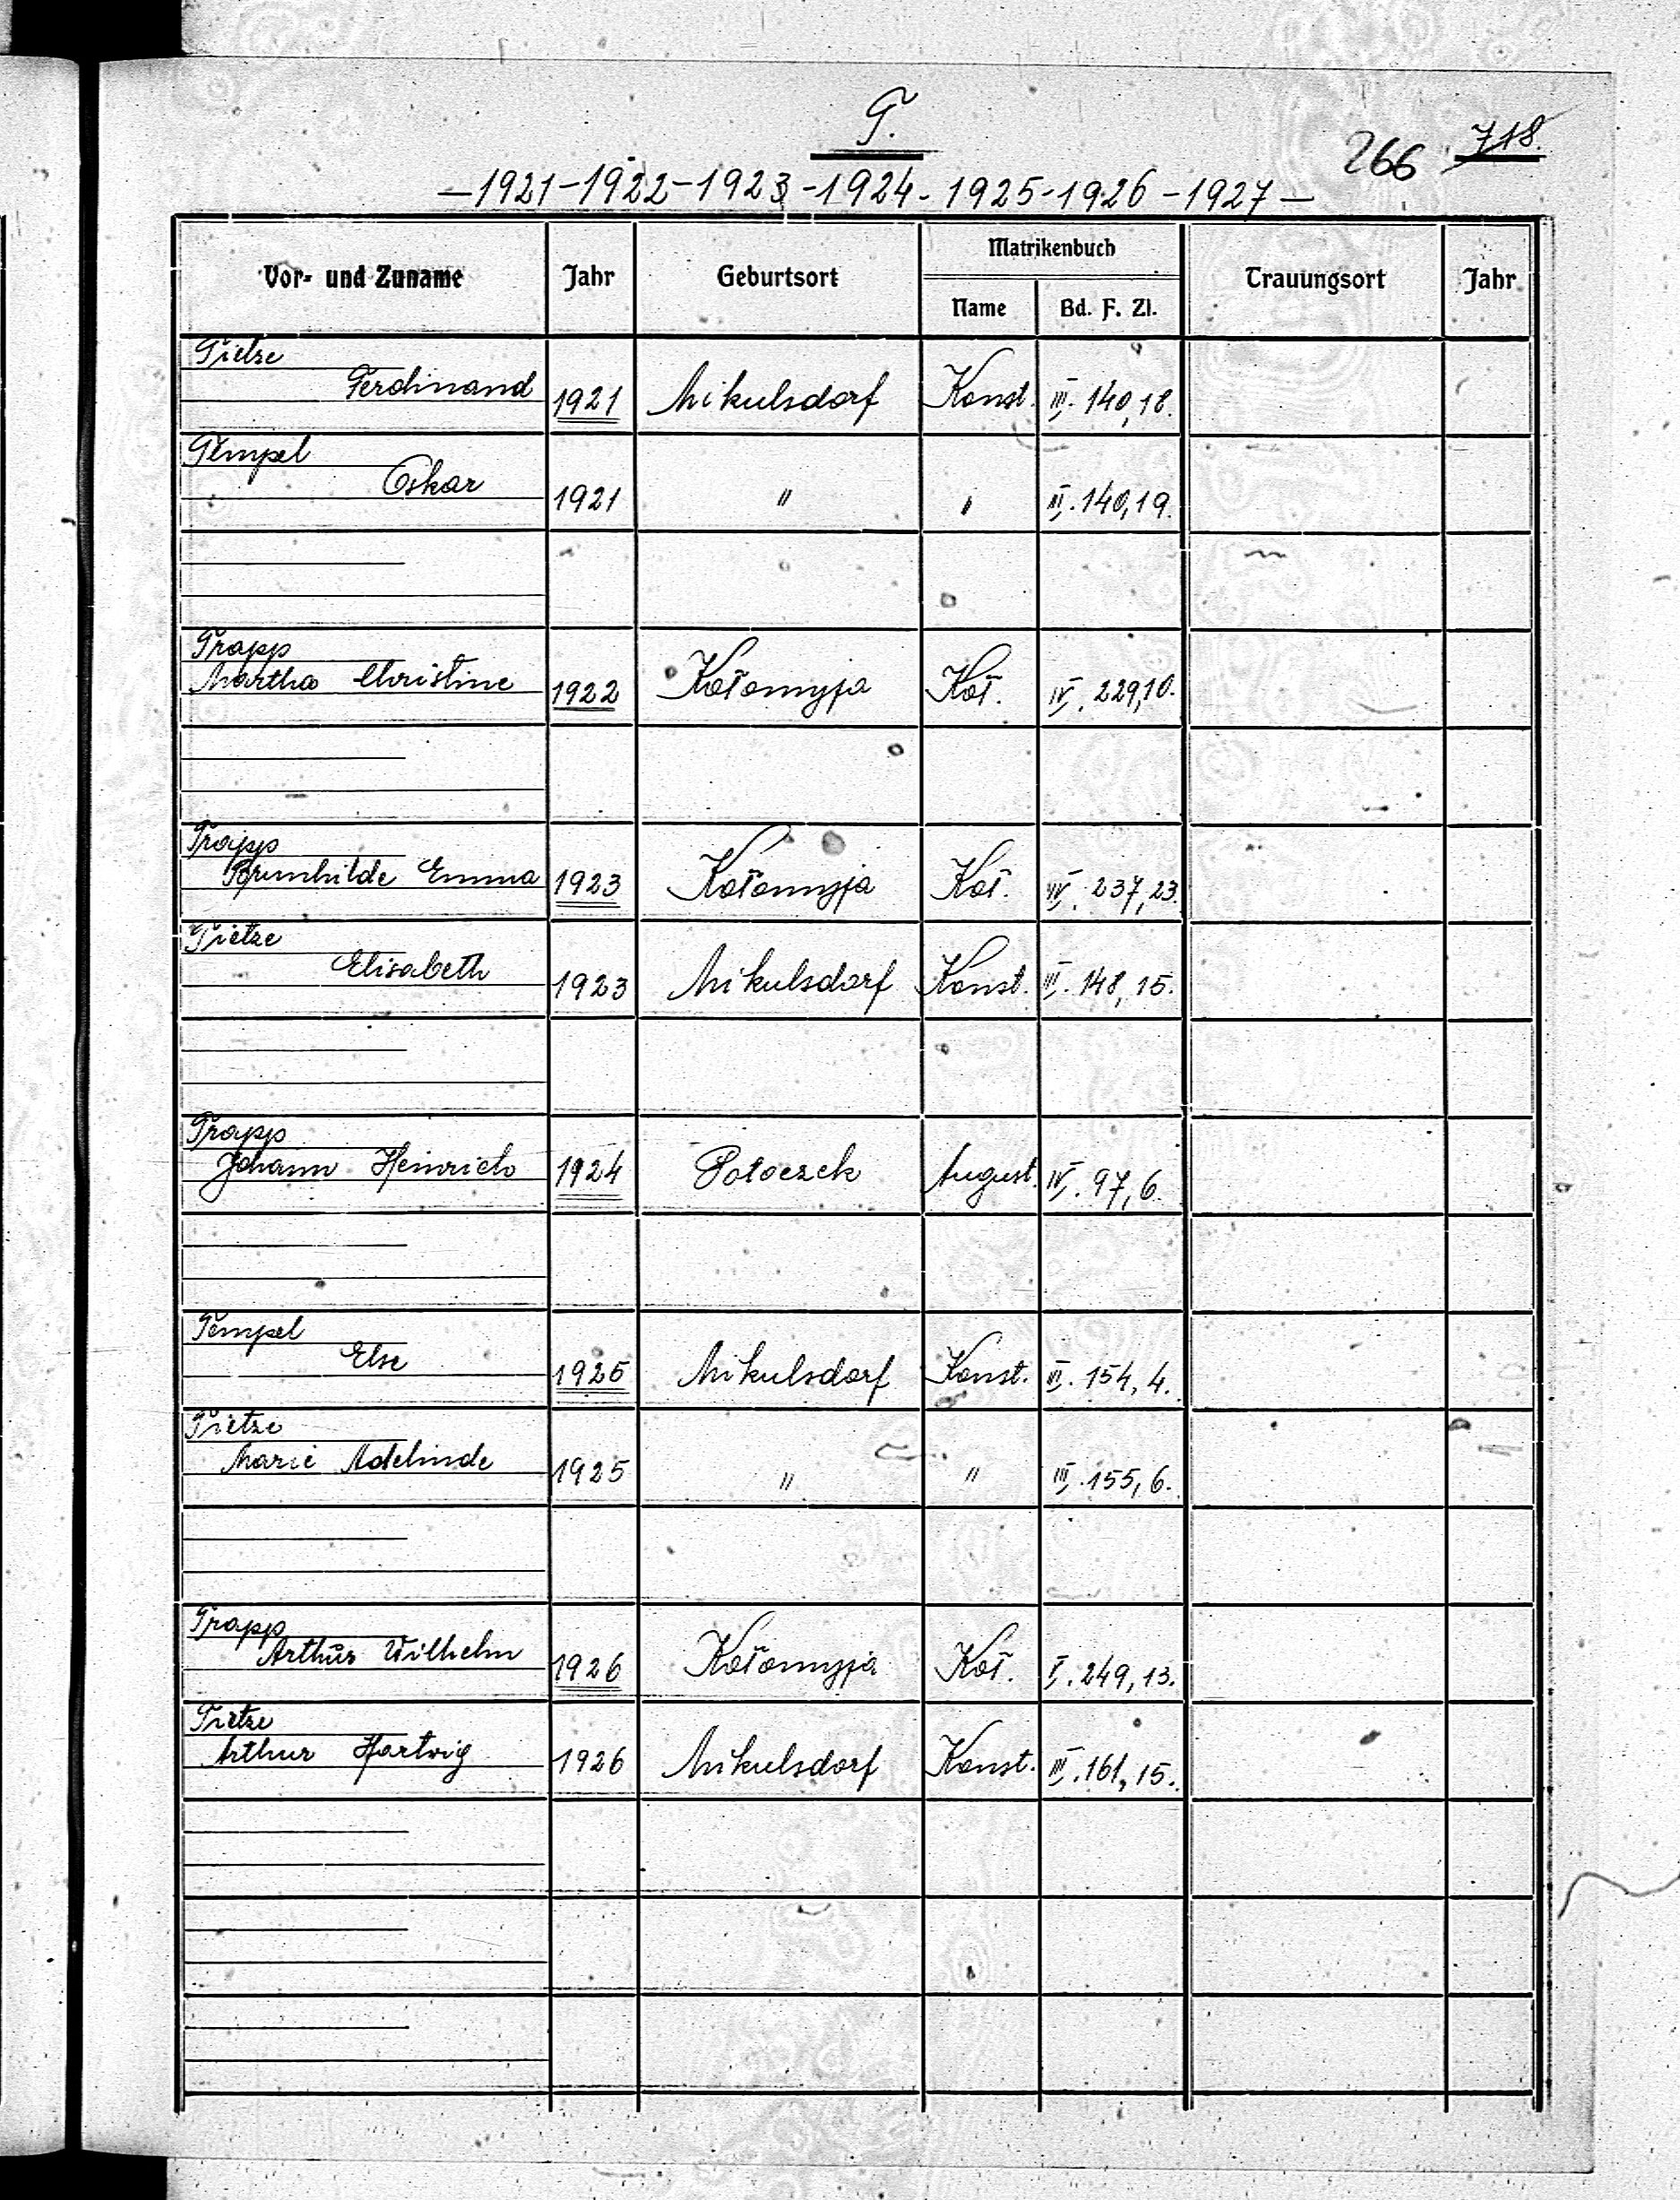 T.
266 718
—1921-1922-1923-1924-1925-1926-1927—
Vor- und Zuname Jahr Geburtsort Matrikenbuch Trauungsort Jahr
Name Bd. F. Zl.
Tietze
Ferdinand 1921 Mikulsdorf Konst. III. 140,18.
Tempel
Oskar 1921 " " III. 140,19.
Trapp
Martha Christine 1922 Kołomyja Koł. IV. 229,10.
Trapp
Brunhilde Emma 1923 Kołomyja Koł. IV. 237,23.
Tietze
Elisabeth 1923 Mikulsdorf Konst. III. 148,15.
Trapp
Johann Heinrich 1924 Potoczek August. IV. 97,6.
Tempel
Else 1925 Mikulsdorf Konst. III. 154,4.
Tietze
Marie Adelinde 1925 " " III. 155,6.
Trapp
Arthur Wilhelm 1926 Kołomyja Koł. V. 249,13.
Tietze
Arthur Hartwig 1926 Mikulsdorf Konst. III. 161,15.